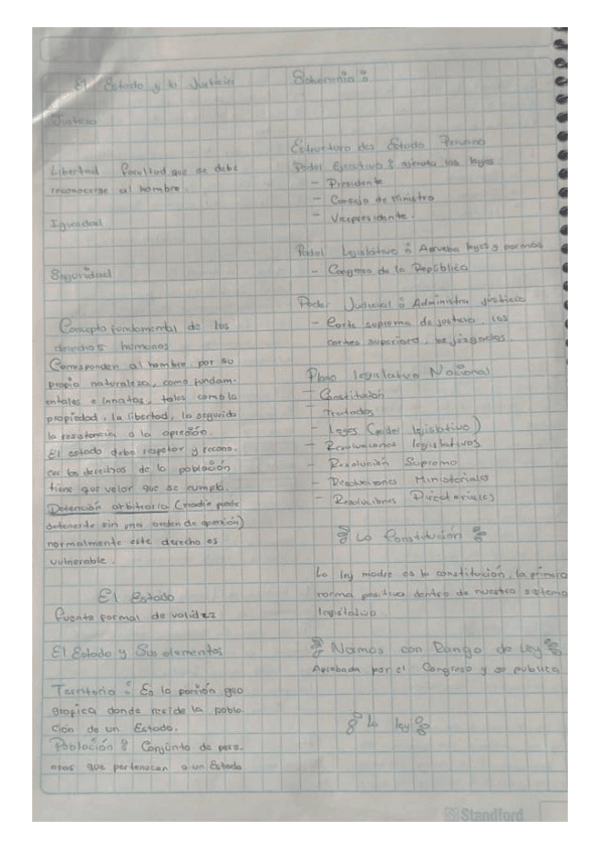 El Estado y la Justicia
Justicia
Libertad facultad que se debe
reconocerse al hombre.
Igualdad
Seguridad
Concepto fundamental de los
derechos humanos
Corresponden al hombre por su
propia naturaleza, como fundam-
entales e innatos, tales como la
propiedad, la libertad, la seguridad
la resistencia a la opresión.
El estado debe respetar y recono-
cer los derechos de la población
tiene que velar que se cumpla.
Detención arbitraria (nadie puede
detenerte sin una orden de)
normalmente este derecho es
vulnerable.
El Estado
fuente formal de validez
El Estado y Sus elementos
Territorio: Es la porción geo
grafica donde reside la pobla-
ción de un Estado.
Población: Conjunto de perso-
nas que pertenecen a un Estado
Soberania:
Estructura del Estado Peruano
Poder Ejecutivo: ejecuta las leyes
- Presidente
- Consejo de Ministro
- Vicepresidente.
Poder Legislativo: Aprueba leyes y normas
- Congreso de la República
Poder Judicial: Administra justicia
- Corte suprema de justicia las
cortes superiores, los juzgados
Plano legislativo Nacional
- Constitución
- Tratados
- Leyes (poder legislativo)
- Resoluciones legislativas
- Resolución Suprema
- Resoluciones Ministeriales
- Resoluciones Directoriales
La Constitución
La ley madre es la constitución, la primera
norma positiva dentro de nuestro sistema
legislativo
Normas con Rango de Ley
Aprobada por el Congreso y se publica
La ley
Standford